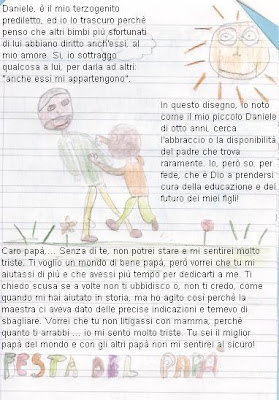 Daniele, é il mio terzogenito
prediletto, ed io lo trascuro perché
penso che altri bimbi più sfortunati
di lui abbiano diritto anch'essi, al
mio amore. Si, io sottraggo
qualcosa a lui, per darla ad altri:
"anche essi mi appartengono".
In questo disegno, Io noto
come il mio piccolo Daniele
di otto anni, cerca
l'abbraccio o la disponibilità
del padre che trova
raramente. Io, però so, per
fede, che é Dio a prendersi
cura della educazione e del
futuro dei miei figli!
Caro papá,... Senza di te, non potrei stare e mi sentirei molto
triste. Ti voglio un mondo di bene papá, peró vorrei che tu mi
aiutassi di piú e che avessi piú tempo per dedicarti a me. Ti
chiedo scusa se a volte non ti ubbidisco o, non ti credo, come
quando mi hai aiutato in storia, ma ho agito cosi perché la
maestra ci aveva dato delle precise indicazioni e temevo di
sbagliare. Vorrei che tu non litigassi con mamma, perché
quanto ti arrabbi ... io mi sento molto triste. Tu sei il miglior
papá del mondo e con gli altri papá non mi sentirei al sicuro!
FESTA DEL PAPÀ